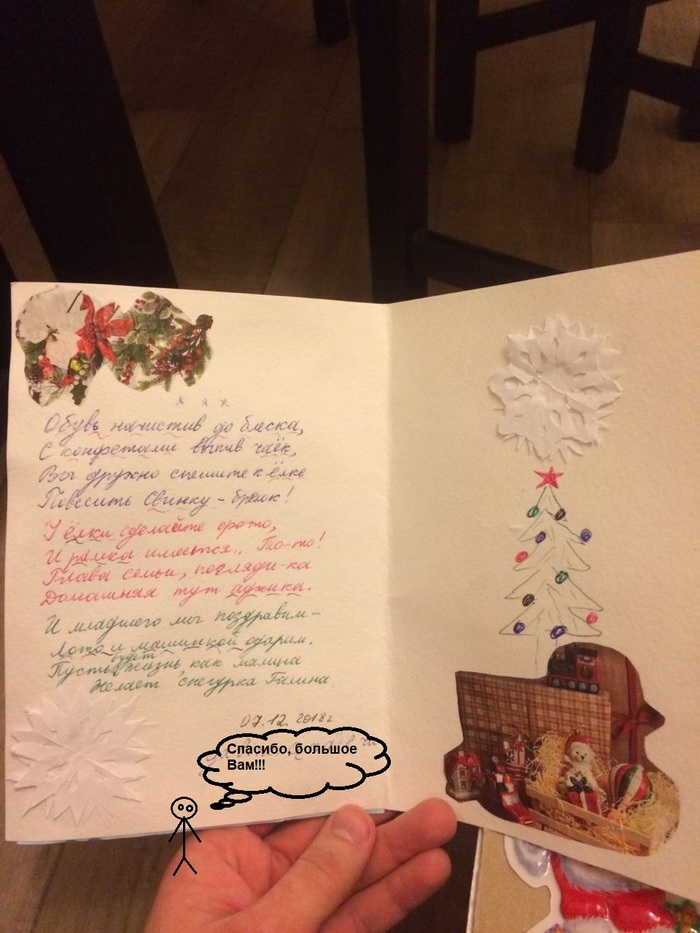 Обувь начистив до блеска,
С конфетами выпив чаёк,
Вы дружно спешите к ёлке
Повесить Свинку - брелок!
У ёлки сделайте фото,
И рамка имеется.. То-то!
Глава семьи, погляди-ка
Домашняя тут аджика.
И младшего мы поздравим -
Лото и машинкой одарим.
Пусть будет жизнь как малина
Желает Снегурка Галина
07.12.2018г
Спасибо, большое
Вам!!!